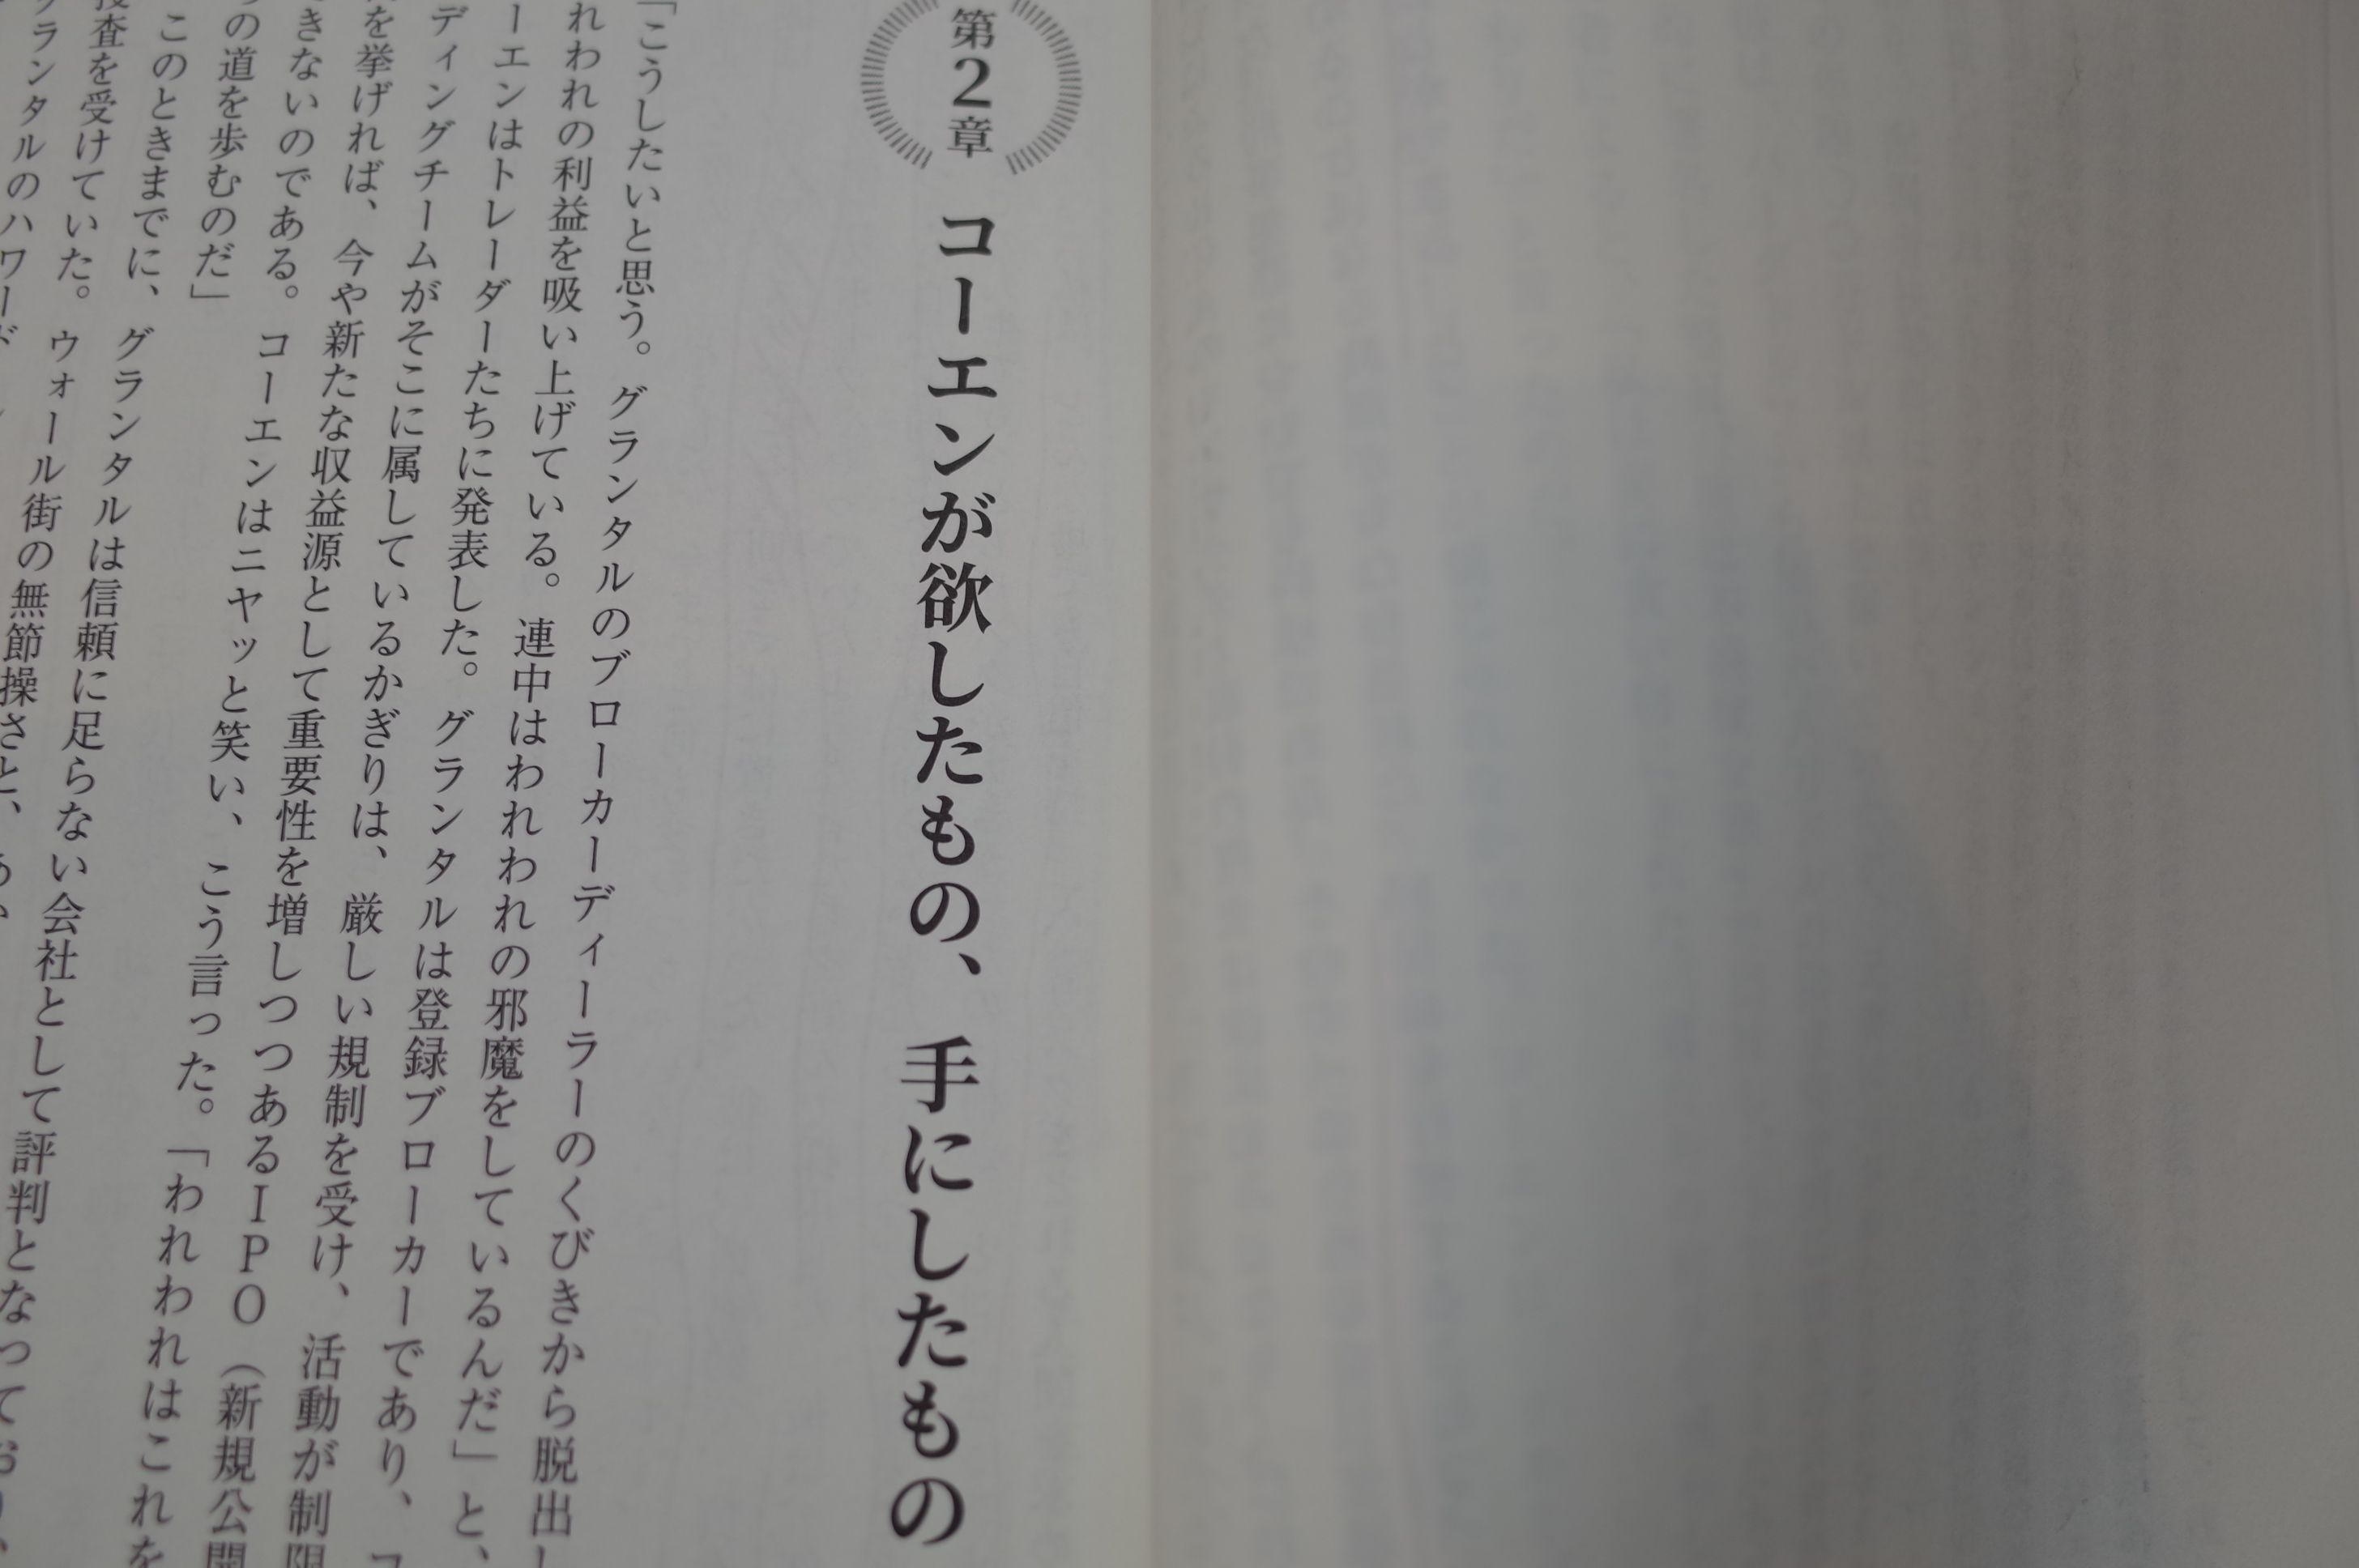 第2章 コーエンが欲したもの、手にしたもの
「こうしたいと思う。グランタルのブローカーディーラーのくびきから脱出し
れわれの利益を吸い上げている。連中はわれわれの邪魔をしているんだ」と、
ーエンはトレーダーたちに発表した。グランタルは登録ブローカーであり、コ
ディングチームがそこに属しているかぎりは、厳しい規制を受け、活動が制限
を挙げれば、今や新たな収益源として重要性を増しつつあるIPO（新規公開
きないのである。コーエンはニヤッと笑い、こう言った。「われわれはこれを
の道を歩むのだ」
このときまでに、グランタルは信頼に足らない会社として評判となっており、
捜査を受けていた。ウォール街の無節操さと、
ランタルのハワード